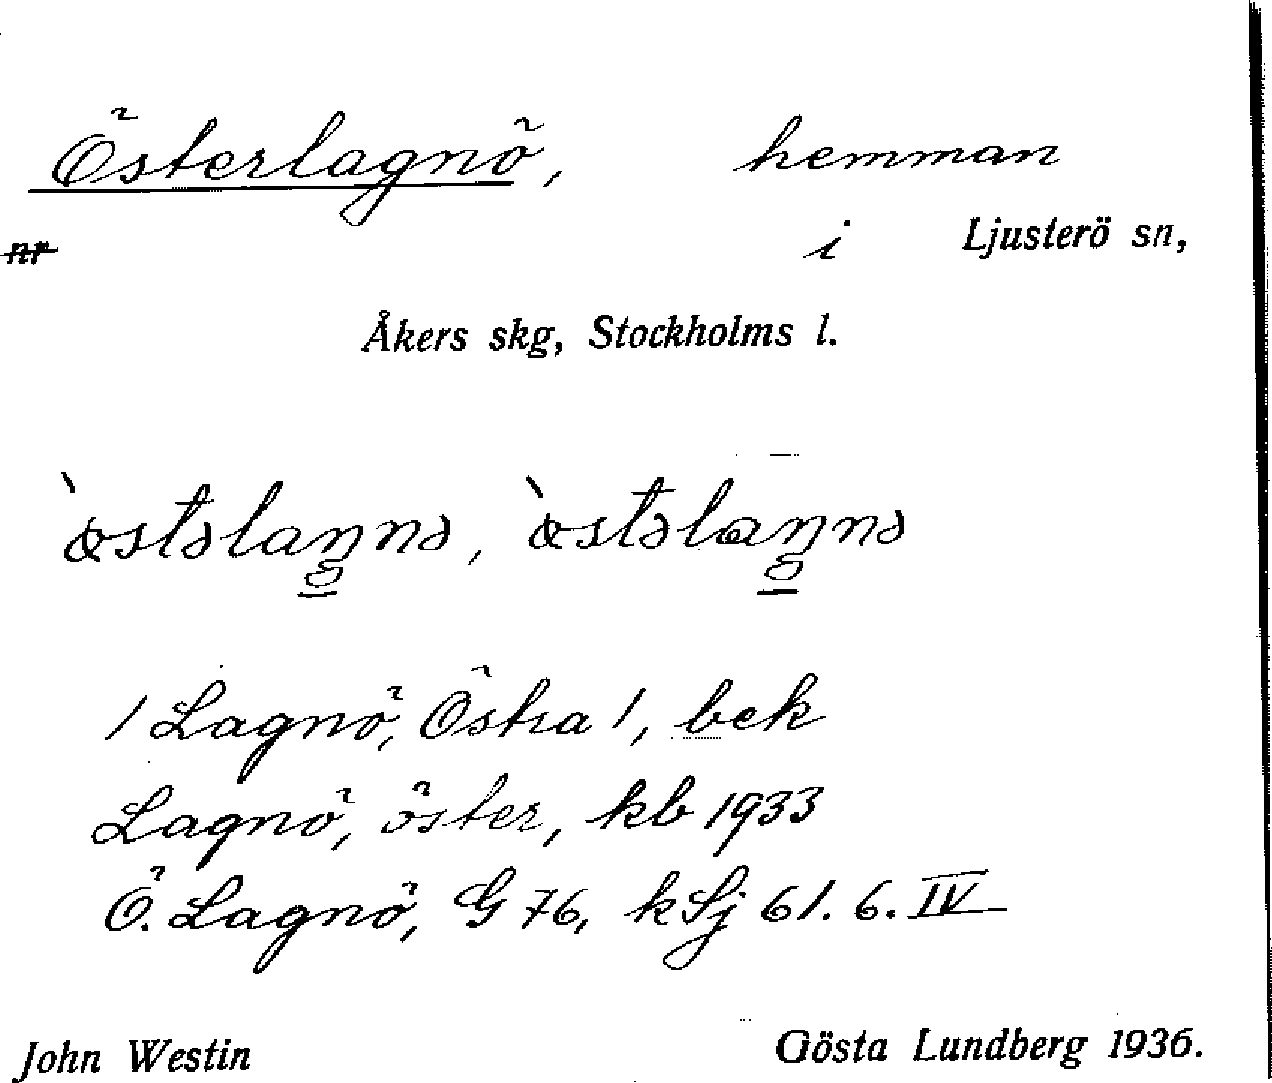 Österlagnö, hemman
nr i Ljusterö sn,
Åkers skg, Stockholms l.
1 Lagnö, Östra 1, bek
Lagnö, öster, kb 1933
Ö. Lagnö, G 76, k Sj 61. 6. IV
John Westin Gösta Lundberg 1936.